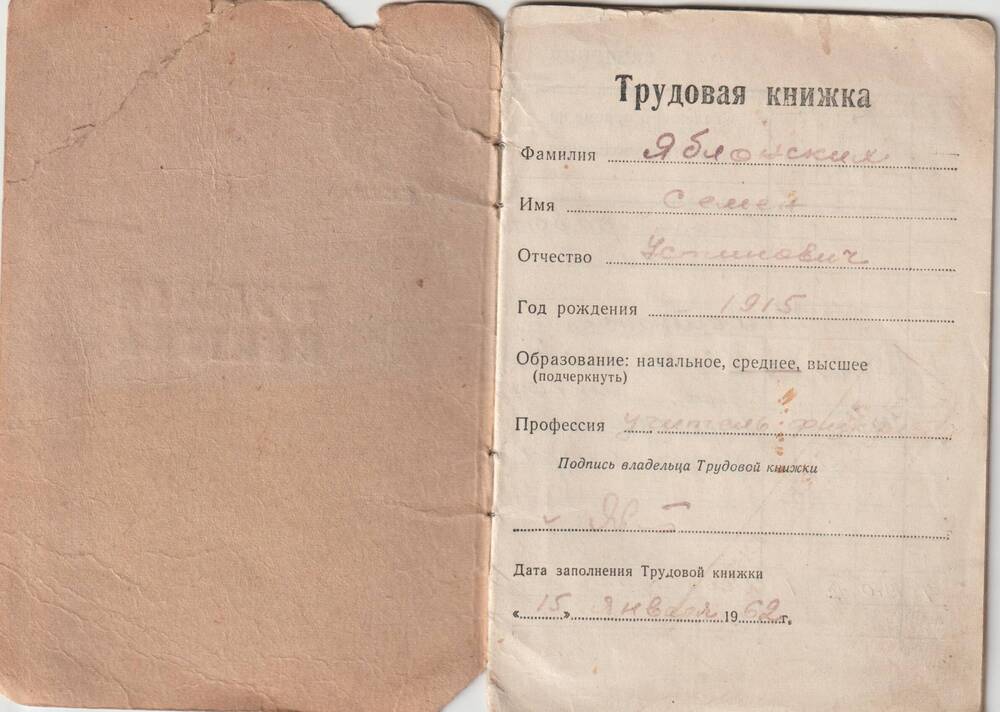 Трудовая книжка
Фамилия Яблонских
Имя Семен
Отчество Устинович
Год рождения 1915
Образование: начальное, среднее, высшее
(подчеркнуть)
Профессия учитель
Подпись владельца Трудовой книжки
Дата заполнения Трудовой книжки
« 15 » января 1962 г.